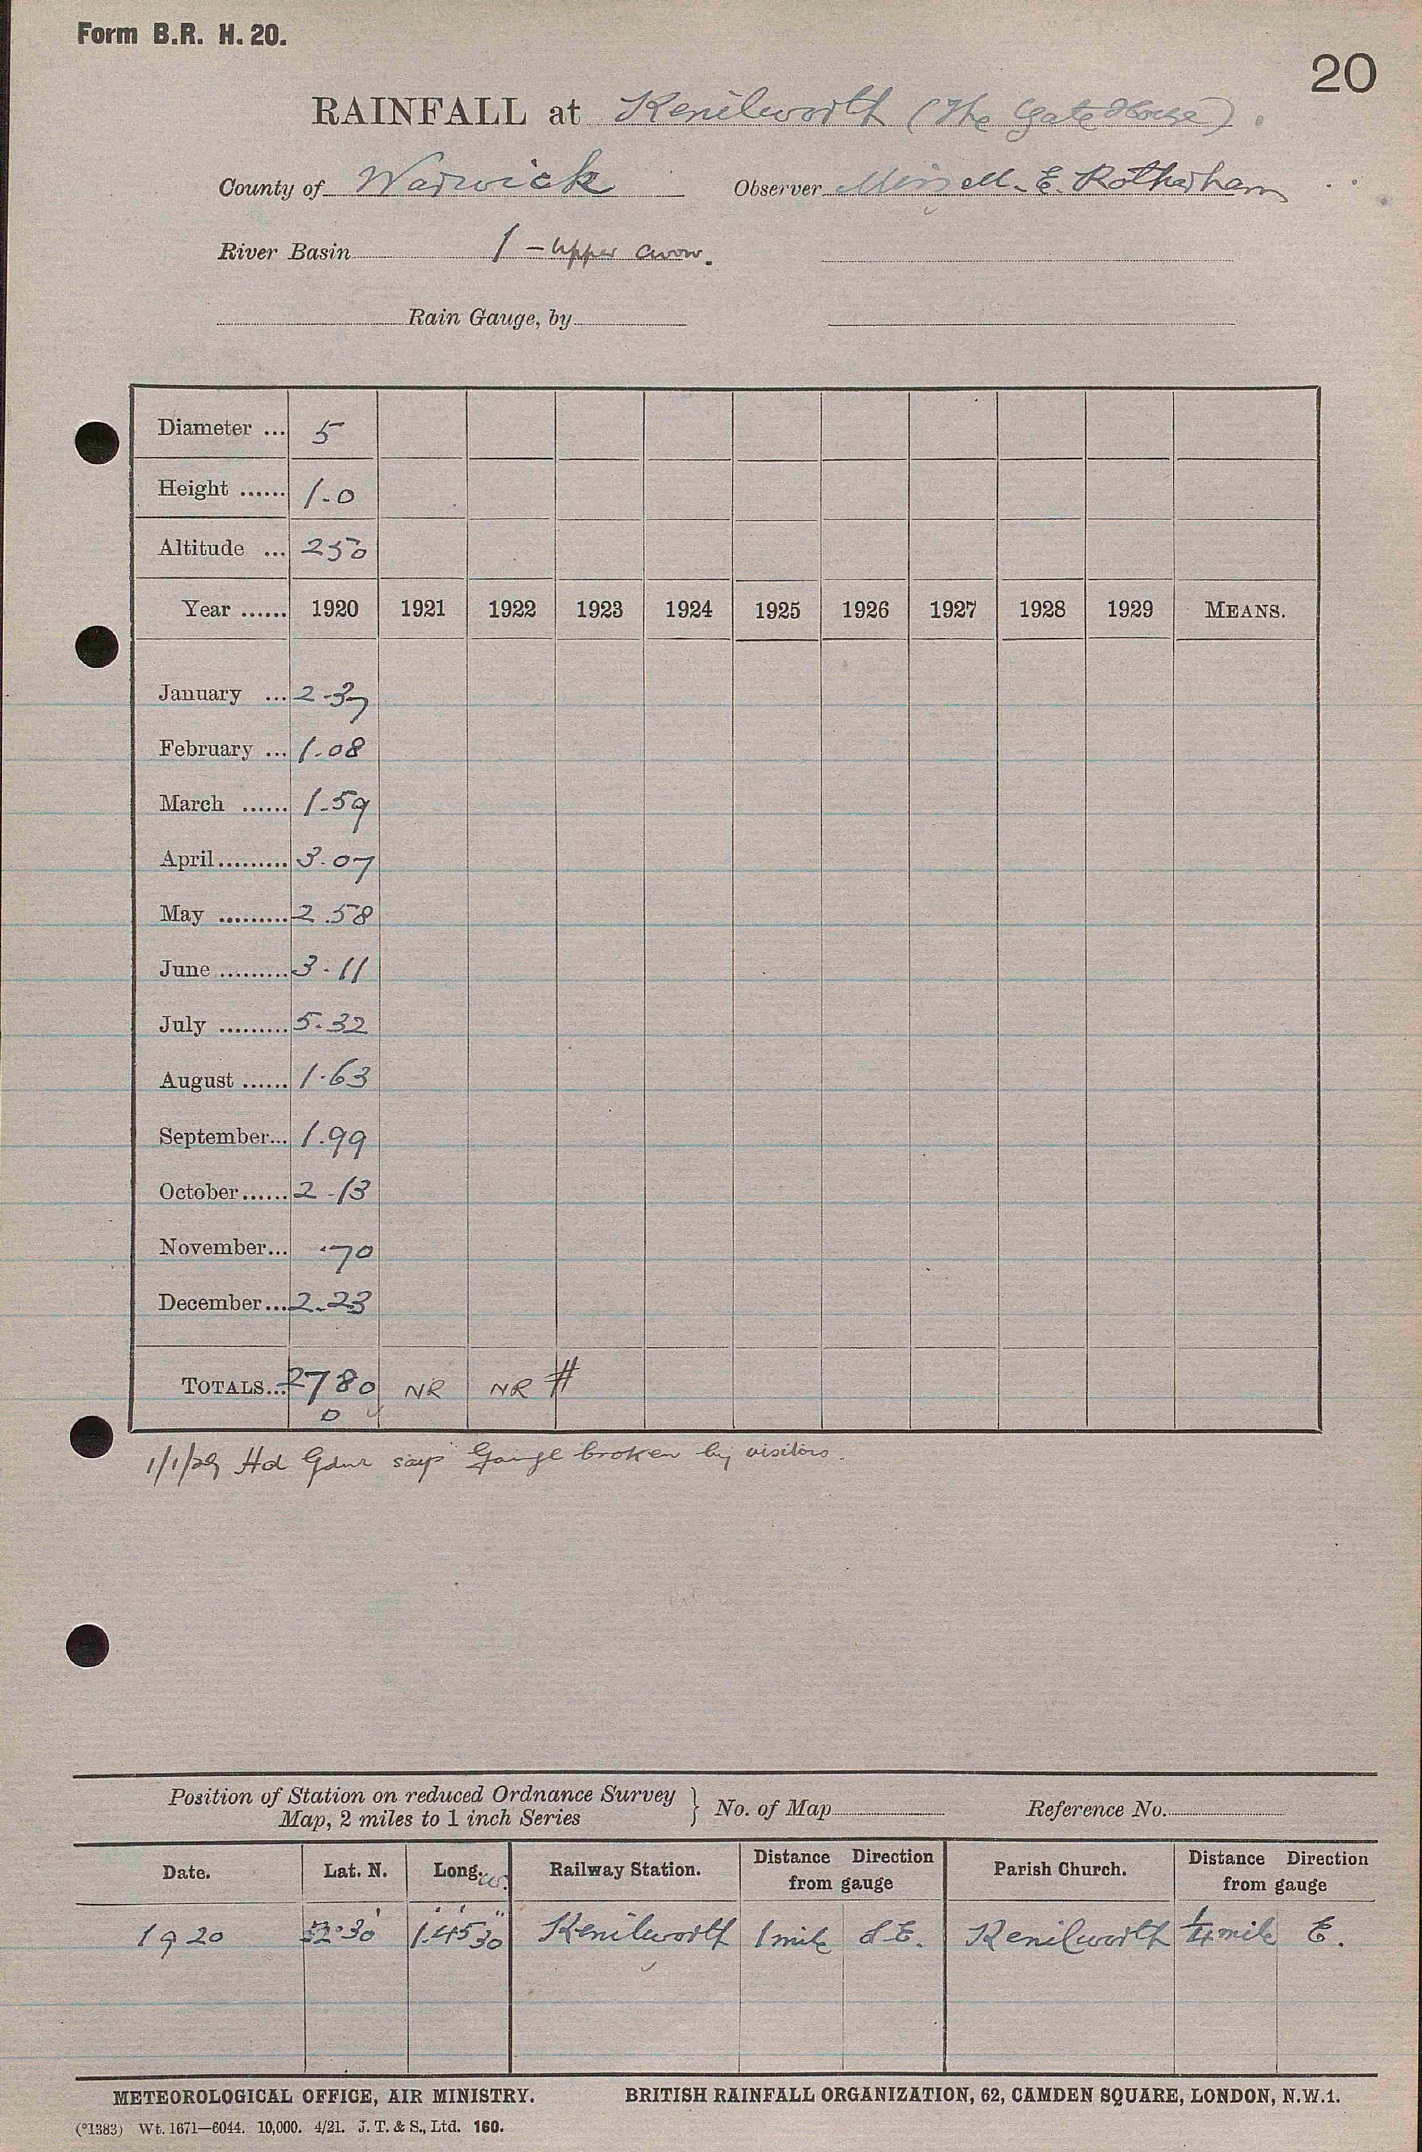 Form B.R. H. 20.
20
RAINFALL at Kenilworth (The Gate House).
County of Warwick Observer Miss M. E. Rotherham
River Basin 1 - Upper Avon.
Rain Gauge, by
Diameter ... 5
Height ...... 1.0
Altitude ... 250
Year ...... 1920 1921 1922 1923 1924 1925 1926 1927 1928 1929 MEANS.
January ... 2.37
February ... 1.08
March ...... 1.59
April......... 3.07
May ......... 2.58
June ......... 3.11
July ......... 5.32
August ...... 1.63
September... 1.99
October...... 2.13
November... .70
December... 2.23
TOTALS... 27 80 NR NR #
1/1/29 Hd Gdnr says Gauge broken by visitors.
Position of Station on reduced Ordnance Survey
Map, 2 miles to 1 inch Series } No. of Map Reference No.
Date. Lat. N. Long. W. Railway Station. Distance Direction from gauge Parish Church. Distance Direction from gauge
1920 52°30' 1°45'30" Kenilworth 1 mile S E. Kenilworth 1/4 mile E.
METEOROLOGICAL OFFICE, AIR MINISTRY. BRITISH RAINFALL ORGANIZATION, 62, CAMDEN SQUARE, LONDON, N.W.1.
(*1383) Wt. 1671—6044. 10,000. 4/21. J. T. & S., Ltd. 160.